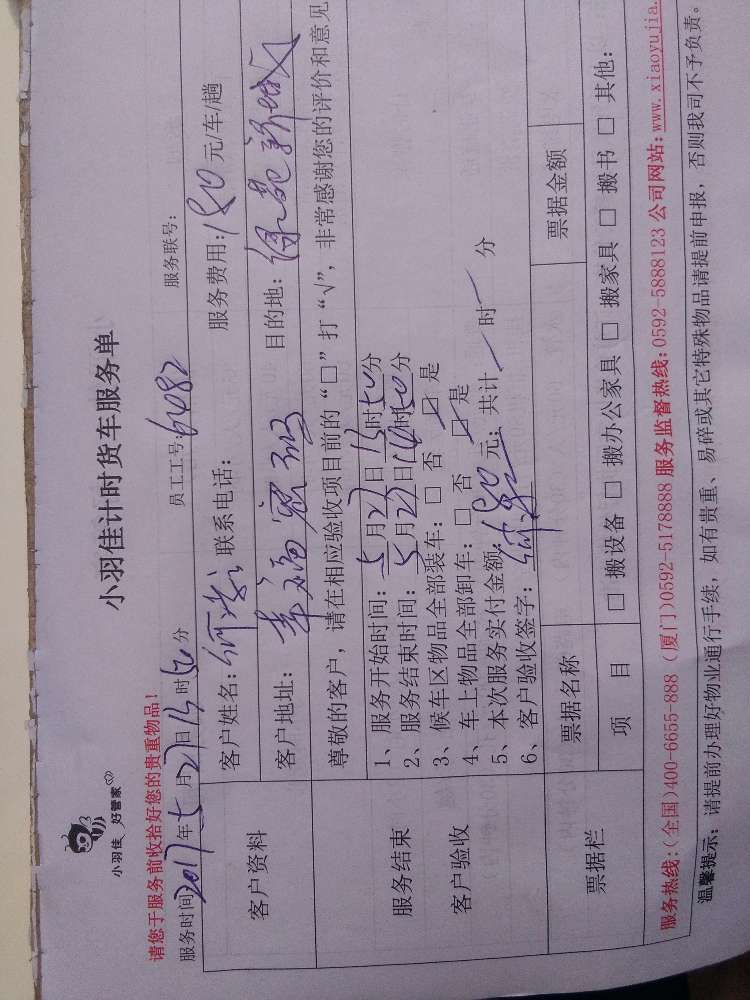 小羽佳 好管家
小羽佳计时货车服务单
请您于服务前收拾好您的贵重物品!
服务时间2017年5月27日13时50分 员工工号:6482 服务联号:
客户资料
客户姓名: 联系电话: 服务费用:180元/车/趟
客户地址: 目的地:
服务结束
客户验收
尊敬的客户，请在相应验收项目前的“□”打“√”，非常感谢您的评价和意见
1、服务开始时间:5月27日13时50分
2、服务结束时间:5月27日14时50分
3、候车区物品全部装车:□ 否 ☑ 是
4、车上物品全部卸车:□ 否 ☑ 是
5、本次服务实付金额 元; 共计 时 分
6、客户验收签字:
票据栏
票据名称 票据金额
项 目 □ 搬设备 □ 搬办公家具 □ 搬家具 □ 搬书 □ 其他:
服务热线:(全国)400-6655-888 (厦门)0592-5178888 服务监督热线:0592-5888123 公司网站:www.xiaoyujia.
温馨提示: 请提前办理好物业通行手续，如有贵重、易碎或其它特殊物品请提前申报，否则我司不予负责。